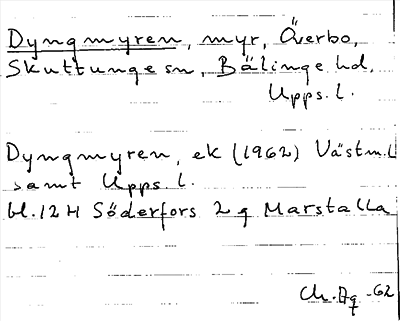 Dyngmyren, myr, Överbo,
Skuttunge sn, Bälinge hd,
Upps. l.
Dyngmyren, ek (1962) Västm.l
samt Upps. l.
bl. 12 H Söderfors 2 g Marstalla
Ch. Ag -62